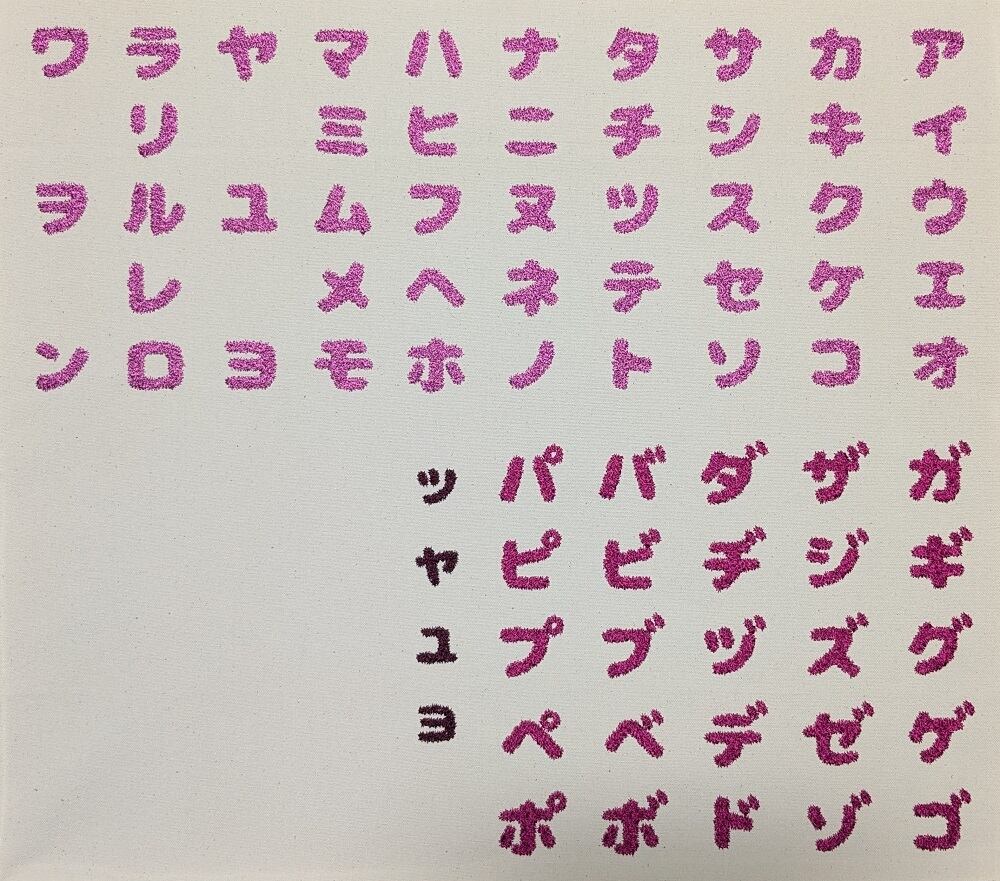 アカサタナハマヤラワ
イキシチニヒミリ
ウクスツヌフムユルヲ
エケセテネヘメレ
オコソトノホモヨロン
ガザダバパッ
ギジヂビピャ
グズヅブプュ
ゲゼデベペョ
ゴゾドボポ